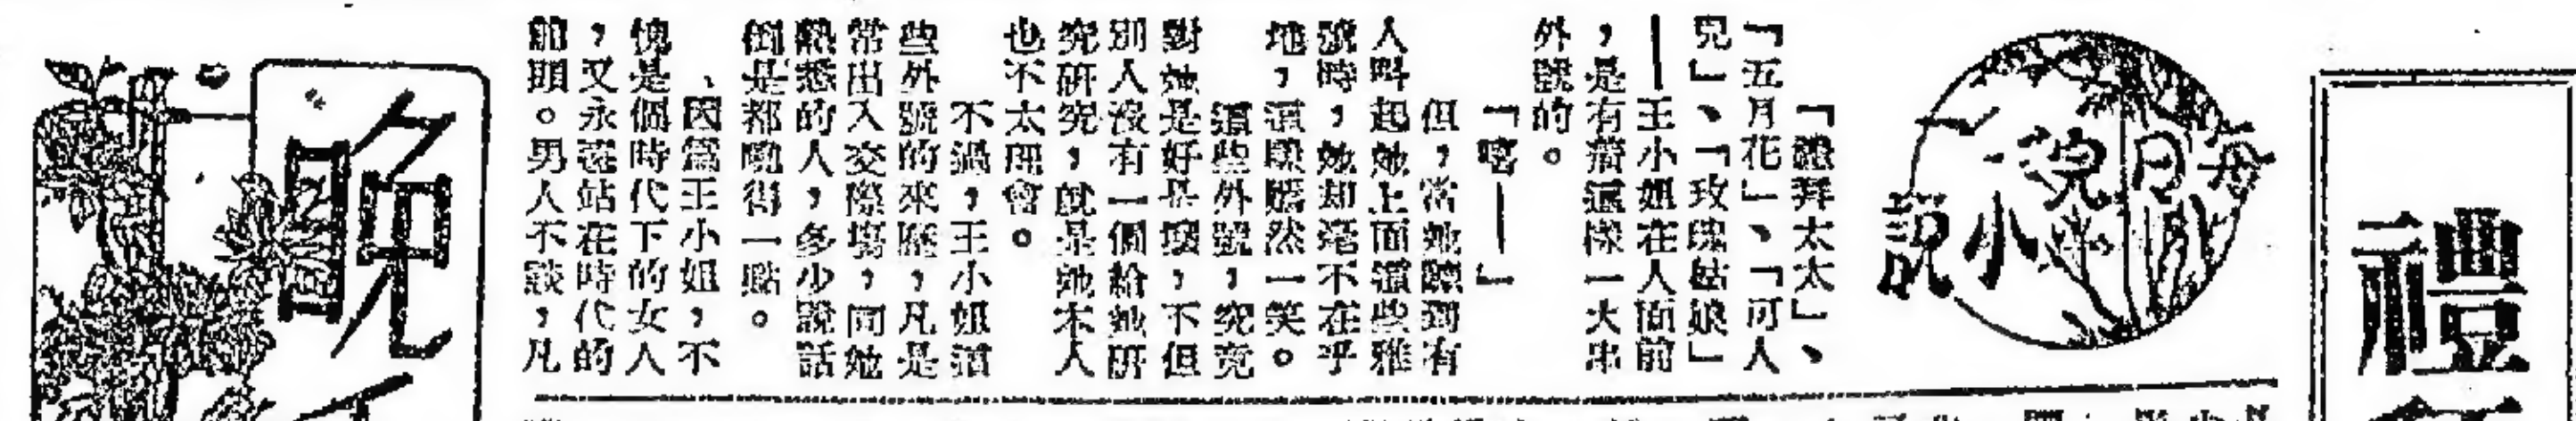 禮
每月完小說
「禮拜太太」、
「五月花」、「可人
兒」、「玫瑰姑娘」
——王小姐在人面前
，是有着這樣一大串
外號的。
「嘻——」
但，當她聽到有
人叫起她上面這些雅
號時，她却毫不在乎
地，這樣嫣然一笑。
這些外號，究竟
對她是好是壞，不但
別人沒有一個給她研
究研究，就是她本人
也不太理會。
不過，王小姐這
些外號的來歷，凡是
常出入交際塲，同她
熟悉的人，多少說話
倒是都曉得一點。
因爲王小姐，不
愧是個時代下的女人
，又永遠站在時代的
前頭。男人不談，凡
晚